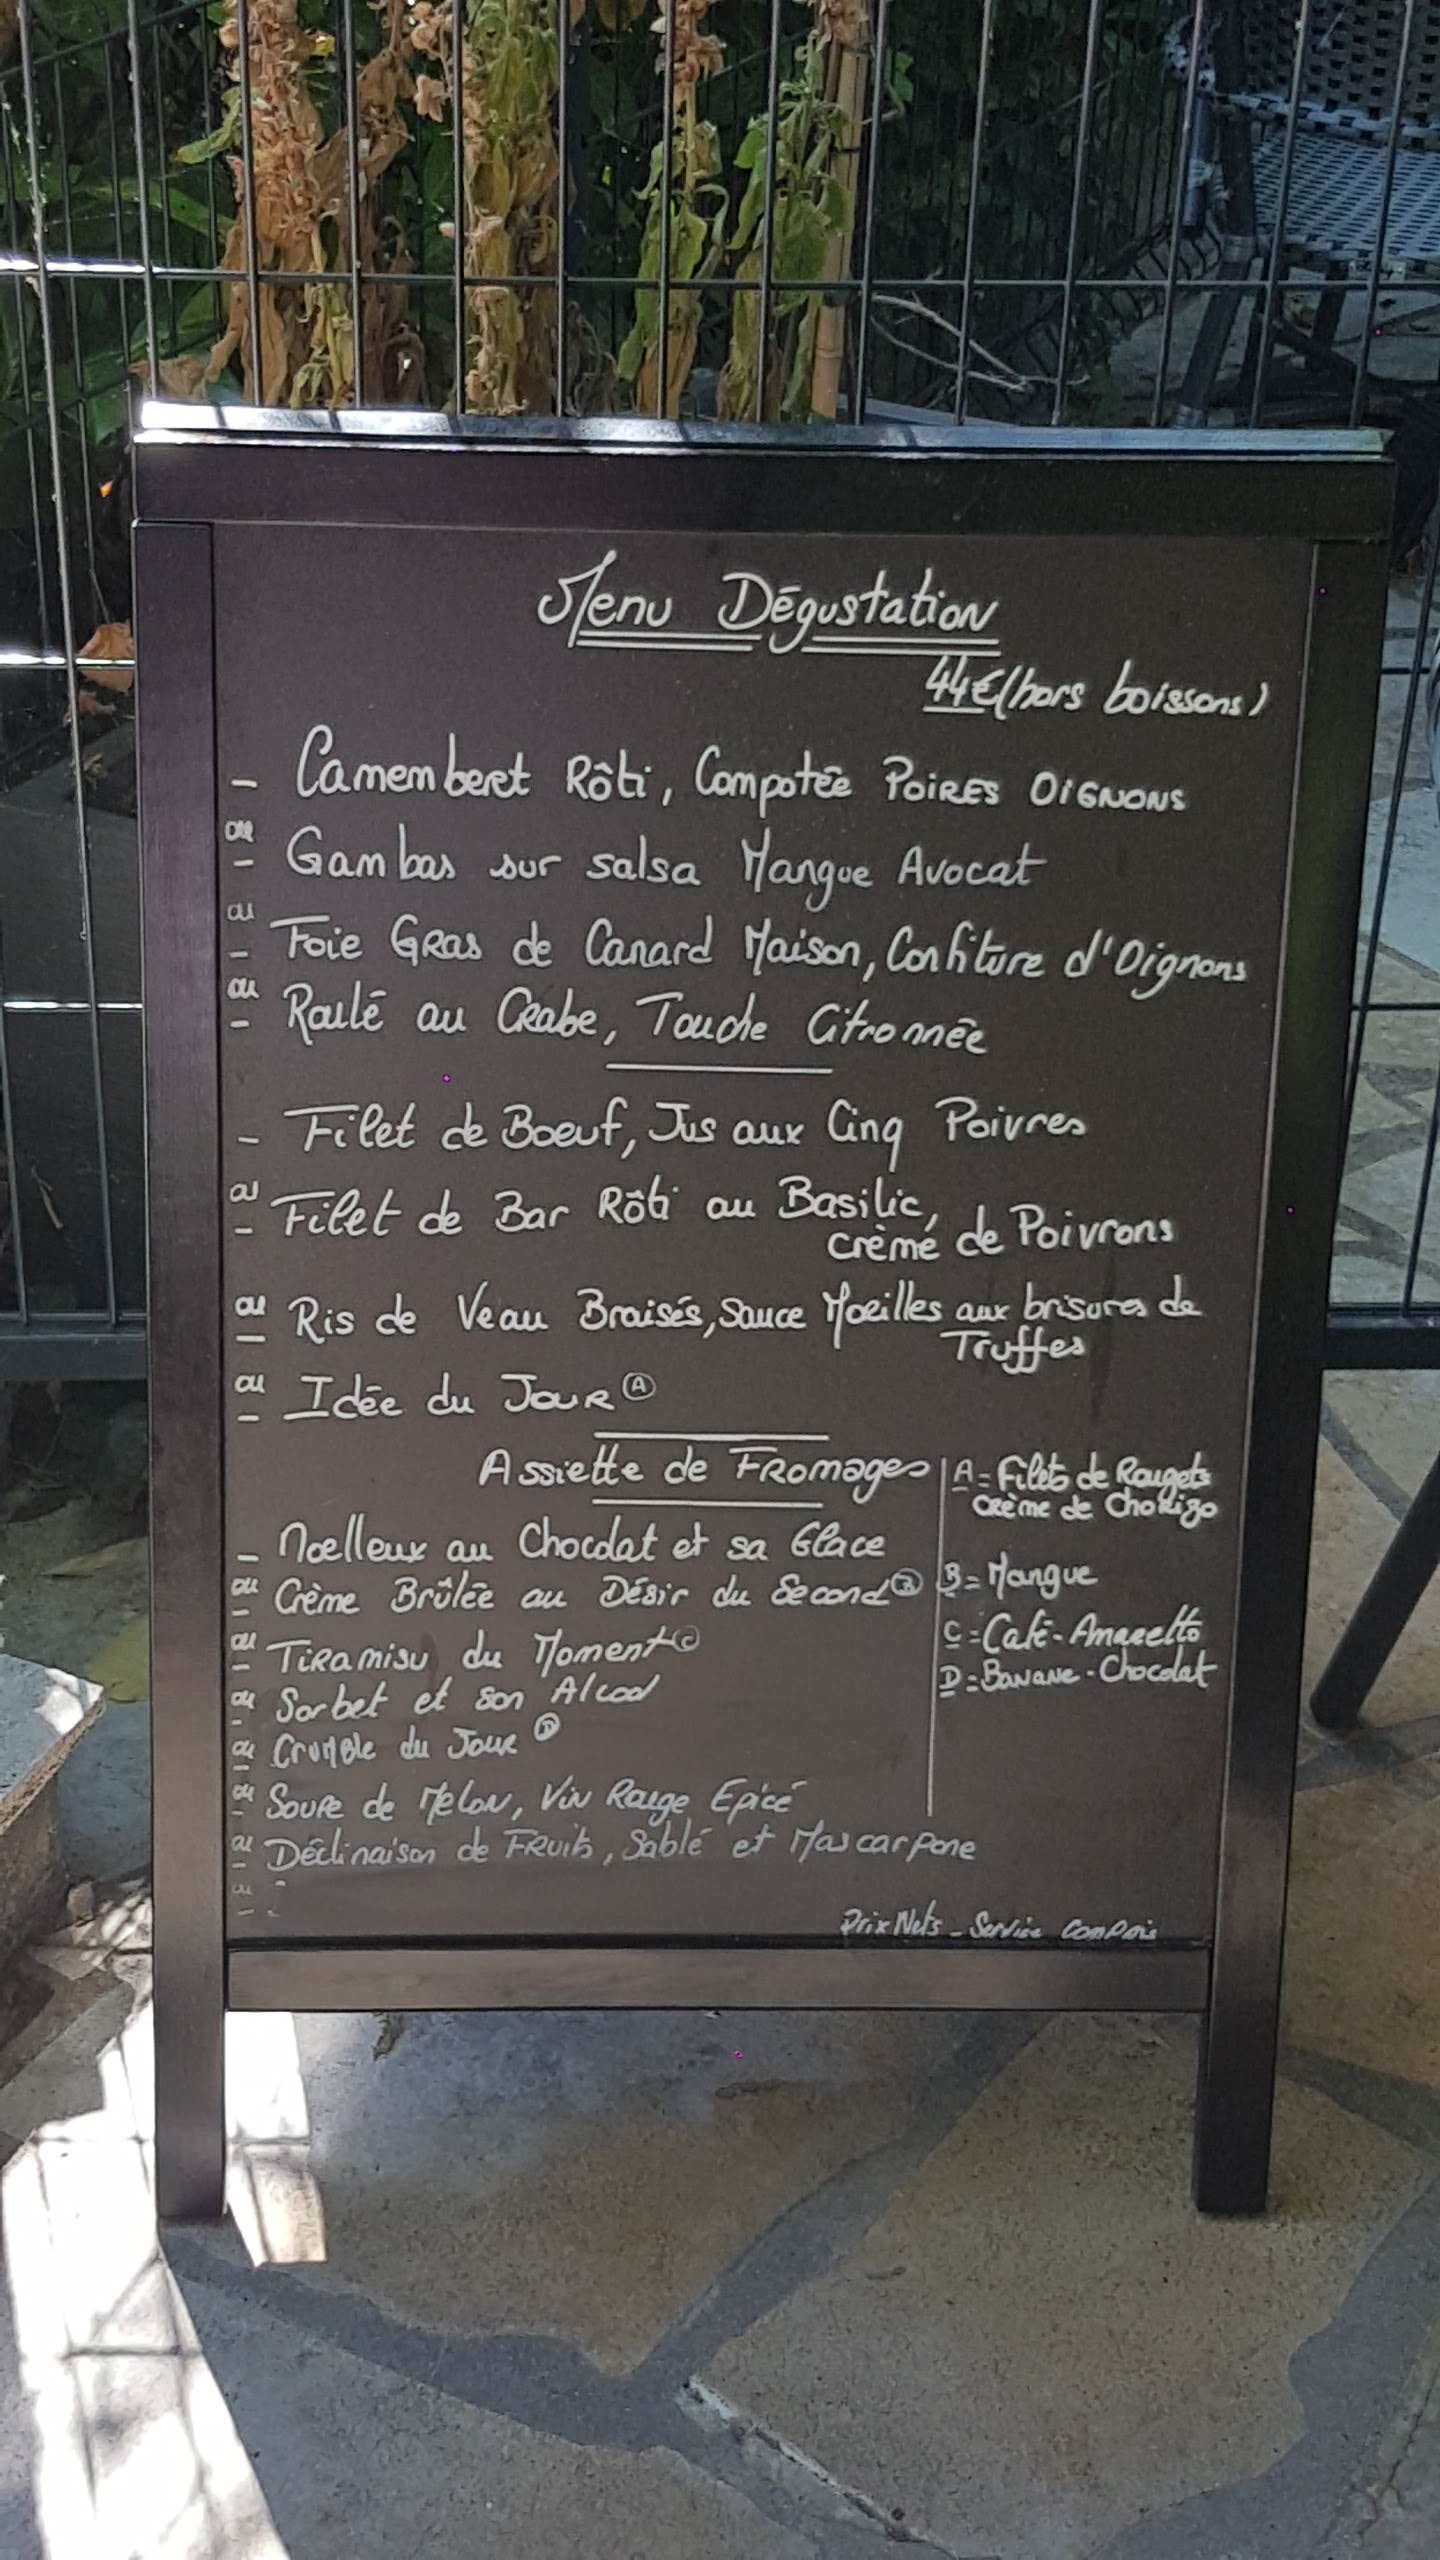 Menu Dégustation
44€ (hors boissons)
- Camembert Rôti, Compotée POIRES OIGNONS
ou
- Gambas sur salsa Mangue Avocat
ou
- Foie GRas de Canard Maison, Confiture d'Oignons
ou
- Roulé au Crabe, Touche Citronnée
- Filet de Boeuf, Jus aux Cinq Poivres
ou
- Filet de Bar Rôti au Basilic,
crème de Poivrons
ou
- Ris de Veau Braisés, Sauce Morilles aux brisures de
Truffes
ou
- Idée du Jour Ⓐ
Assiette de Fromages
- Moelleux au Chocolat et sa Glace
ou
- Crème Brûlée au Désir du Second Ⓑ
ou
- Tiramisu du Moment Ⓒ
ou
- Sorbet et son Alcool
ou
- Crumble du Jour Ⓓ
ou
- Soupe de Melon, Vin Rouge Epicé
ou
- Déclinaison de Fruits, Sablé et Mascarpone
ou
-
A = Filets de Rougets
crème de Chorizo
B = Mangue
C = Café - Amaretto
D = Banane - Chocolat
Prix Nets - Service Compris